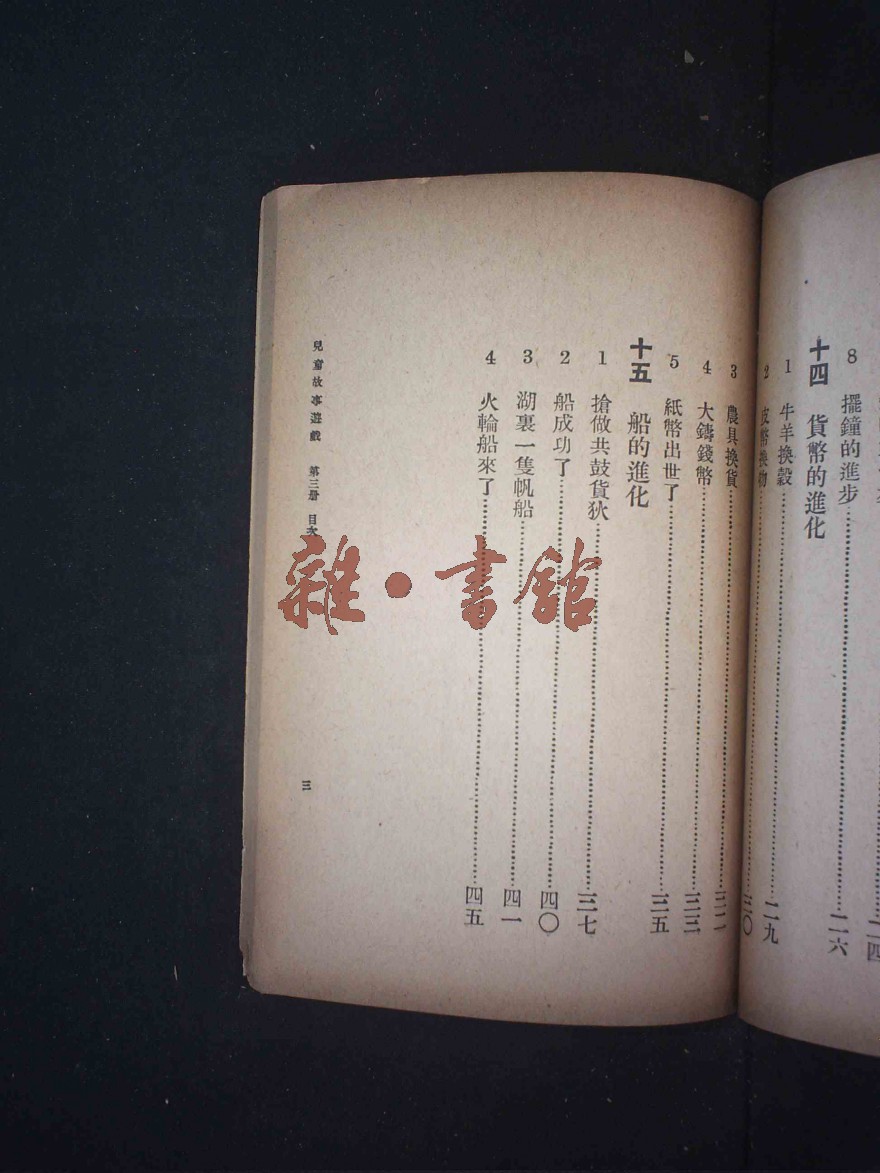 8 擺鐘的進步……二六
十四 貨幣的進化
1 牛羊換穀……二九
2 皮幣換物……三〇
3 農具換貨……三二
4 大鑄錢幣……三三
5 紙幣出世了……三五
十五 船的進化
1 搶做共鼓貨狄……三七
2 船成功了……四〇
3 湖裏一隻帆船……四一
4 火輪船來了……四五
兒童故事遊戲 第三册 目次
三
雜·書館